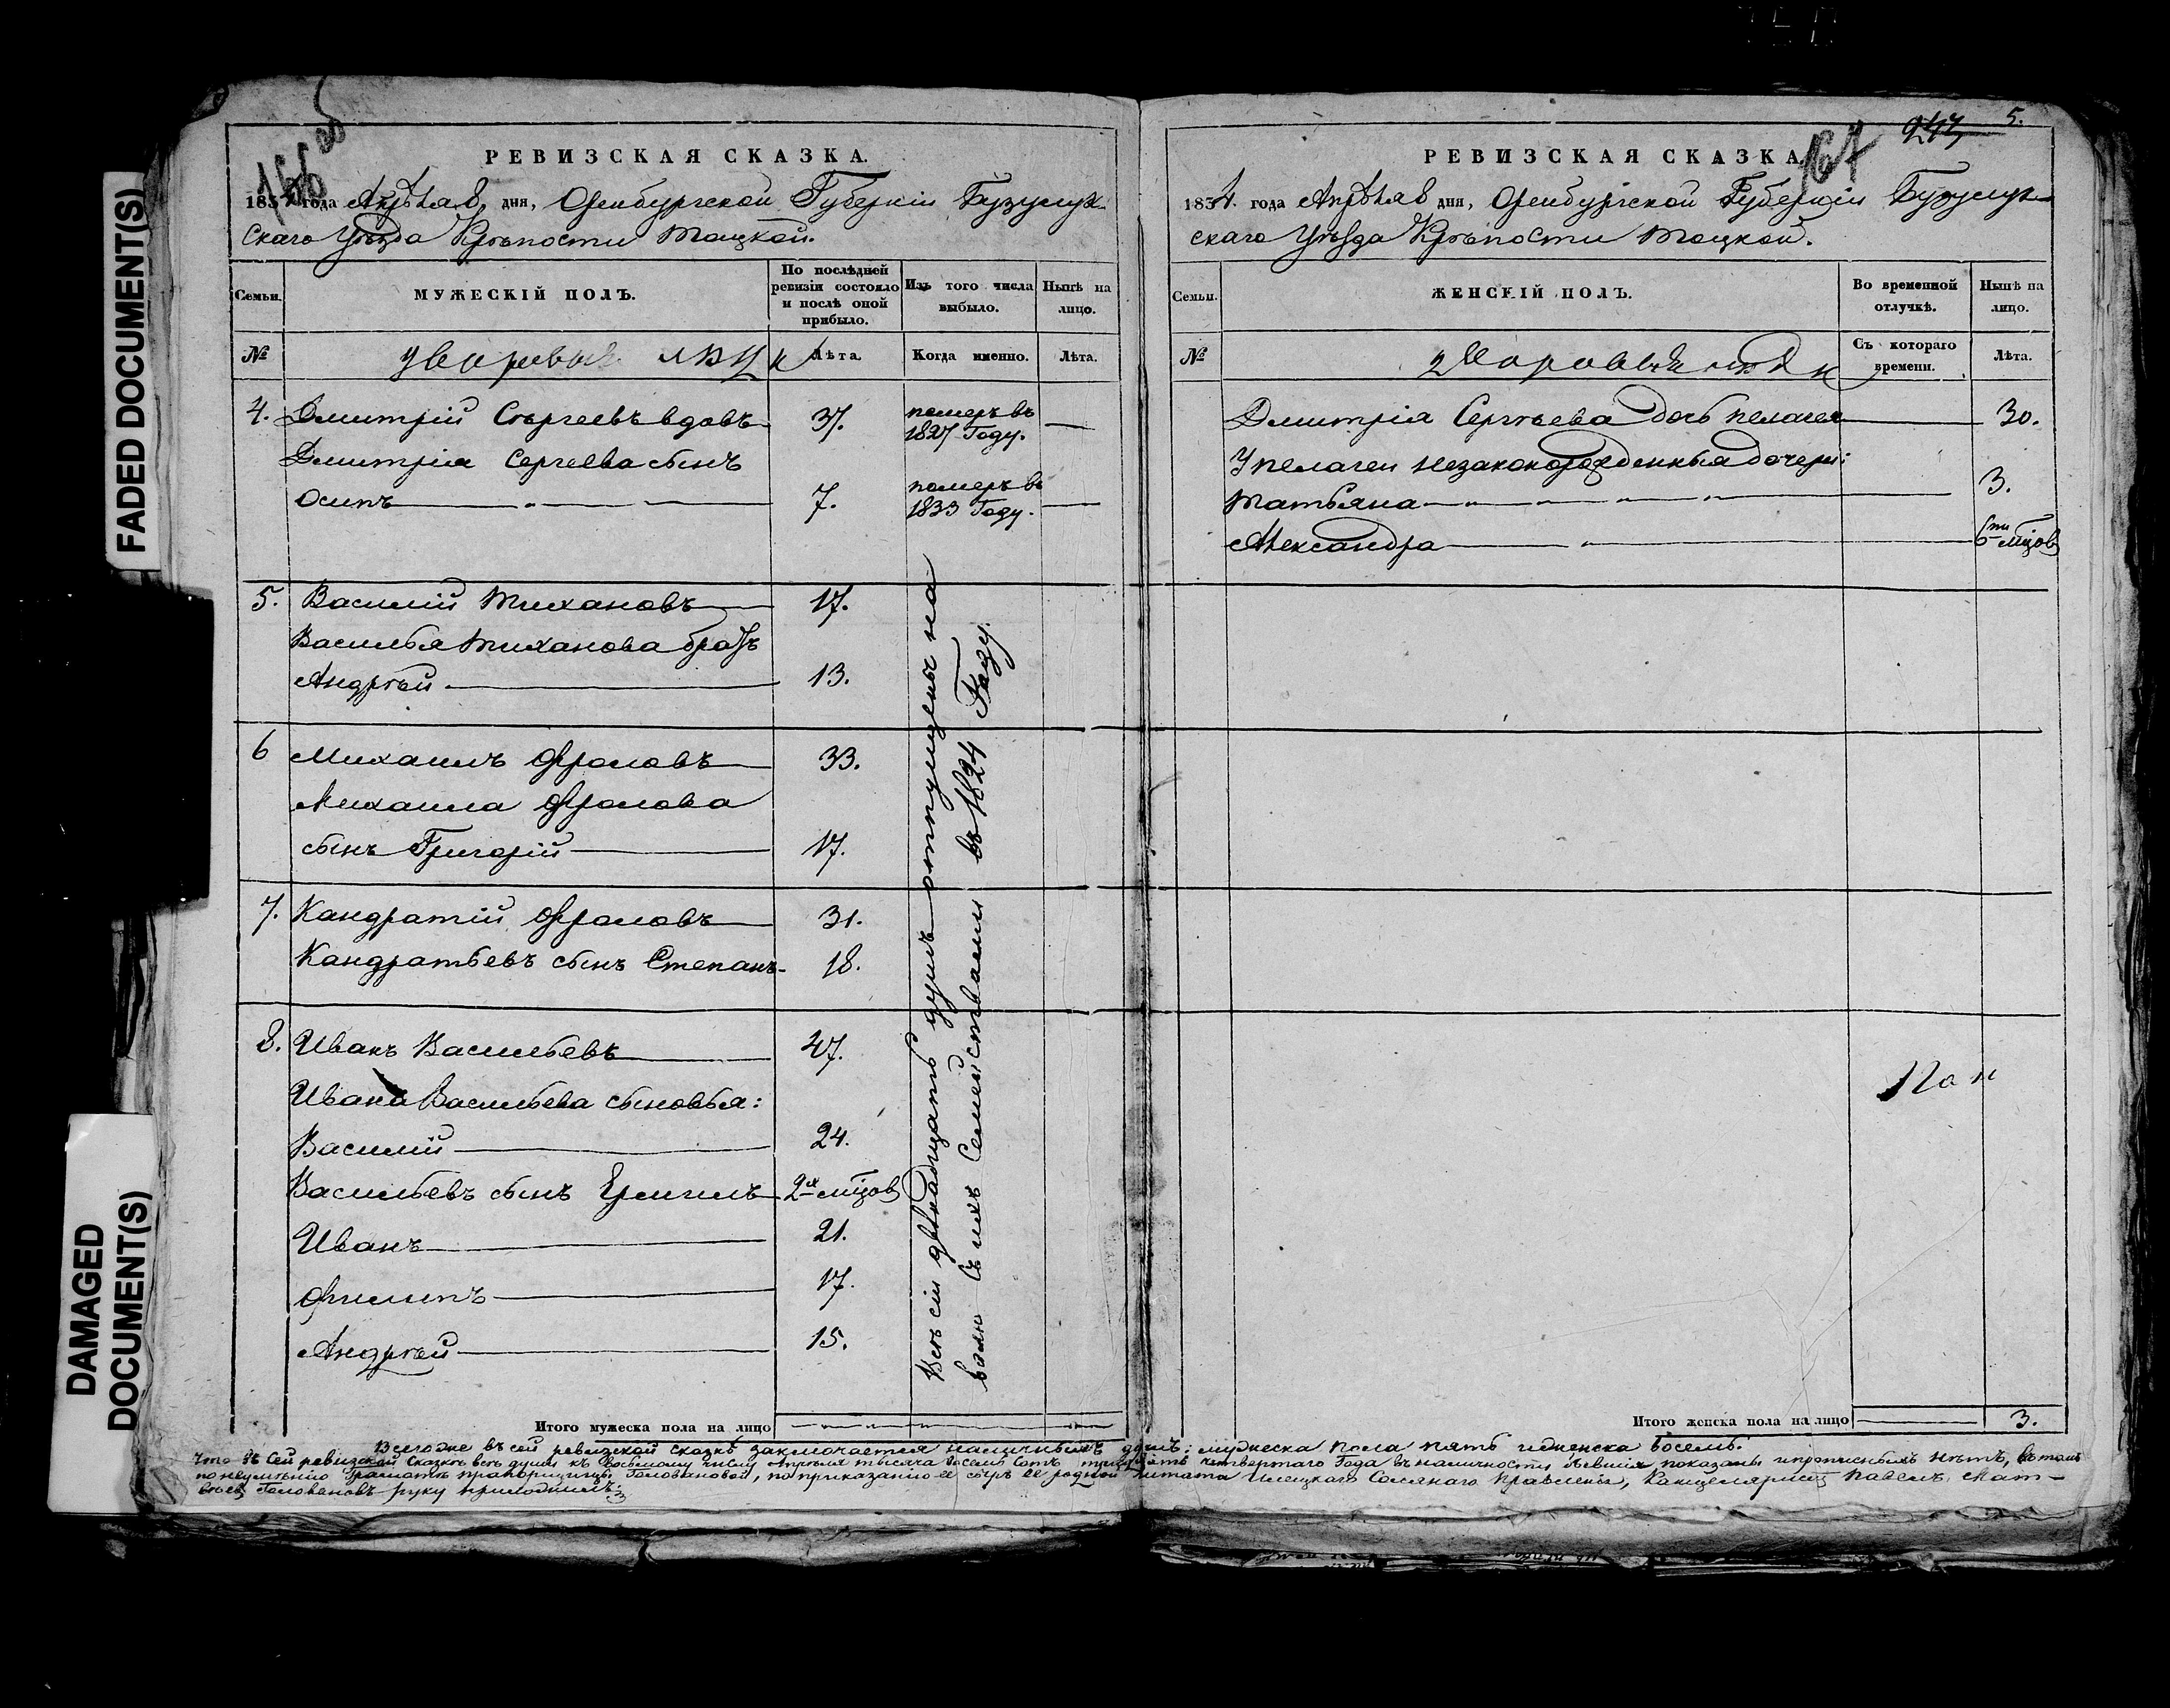 FADED DOCUMENT(S)
DAMAGED
DOCUMENT(S)
166 об
РЕВИЗСКАЯ СКАЗКА.
185 года Апрѣля 8, дня, Оренбургской Губерніи Бузулук-
скаго Уѣзда Крѣпости Тоцкой.
Семьи.
МУЖЕСКІЙ ПОЛЪ.
По послѣдней ревизіи состояло и послѣ оной прибыло.
Изъ того числа выбыло.
Нынѣ на лицо.
№
дворовые люди
Лѣта.
Когда именно.
Лѣта.
4. Дмитрій Сергеевъ вдовъ 37. померъ въ 1827 Году.
Дмитрія Сергеева сынъ
Осипъ 7. померъ въ 1833 Году.
5. Василій Тихановъ 17.
Василья Тиханова братъ
Андрѣй 13.
6 Михаилъ Фроловъ 33.
Михаила Фролова
сынъ Григорій 17.
7. Кандратій Фроловъ 31.
Кандратьевъ сынъ Степанъ 18.
8. Иванъ Васильевъ 47.
Ивана Васильева сыновья:
Василій 24.
Васильевъ сынъ Ермилъ 2х мцов
Иванъ 21.
Филипъ 17.
Андрѣй 15.
Всѣ сіи двѣнадцать душъ отпущены на
волю съ ихъ Семействами въ 1824 Году
Итого мужеска пола на лицо
247, 5.
167
РЕВИЗСКАЯ СКАЗКА.
1834. года Апрѣля 8 дня, Оренбургской Губерніи Бузулук-
скаго Уѣзда Крѣпости Тоцкой.
Семьи.
ЖЕНСКІЙ ПОЛЪ.
Во временной отлучкѣ.
Нынѣ на лицо.
№
дворовыя люди
Съ котораго времени.
Лѣта.
Дмитрія Сергѣева дочь пелагея 30.
У пелагеи незаконорожденныя дочери:
Татьяна 3.
Александра 6ти мцов
Итого женска пола на лицо 3.
Всего же въ сей ревизской сказкѣ заключается наличныхъ душъ: мужеска пола пять и женска восемь.
Что въ сей ревизской Сказкѣ всѣ души къ Восьмому числу Апрѣля тысяча восемь Сотъ тридцать четвертаго Года въ наличности бывшія показаны и прописныхъ нѣтъ, въ томъ
по неумѣнію Грамотѣ прапорщицы Головановой, по приказанію ее сынъ ее родной штата Илецкаго Солянаго Правленія, Канцеляристъ Павелъ Мат-
вѣевъ Головановъ руку приложилъ.